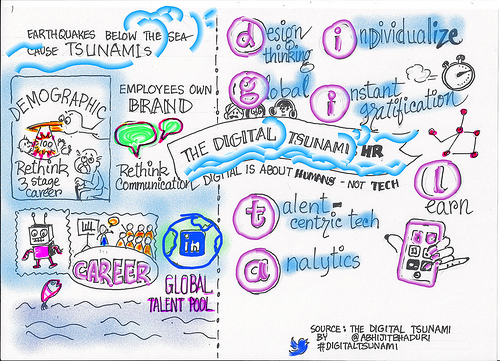 EARTHQUAKES BELOW THE SEA-
CAUSE TSUNAMIS
DEMOGRAPHIC
100
Rethink
3 stage
career
EMPLOYEES OWN
BRAND
Rethink
Communication
CAREER
in
GLOBAL
TALENT POOL
design
thinking
global
individualize
instant
gratification
THE DIGITAL TSUNAMI HR
DIGITAL IS ABOUT HUMANS - NOT TECH
learn
talent-
centric tech
analytics
SOURCE: THE DIGITAL TSUNAMI
BY @ABHIJITBHADURI
#DIGITALTSUNAMI